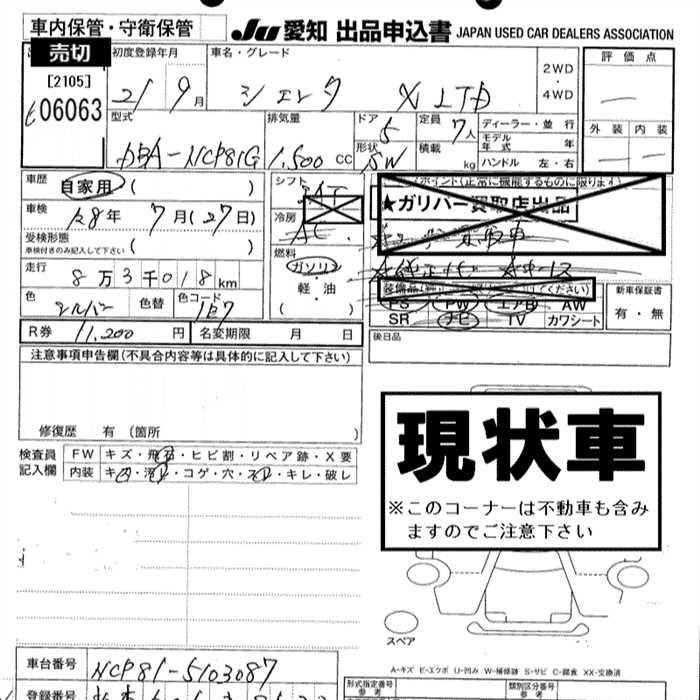 車内保管・守衛保管
JU 愛知 出品申込書 JAPAN USED CAR DEALERS ASSOCIATION
売切
[2105]
06063
初度登録年月
21 9月
車名・グレード
シエンタ X LTD
2WD
・
4WD
評価点
外装 内装
型式
DBA-NCP81G
排気量
1,500 cc
ドア
5
形状
SW
定員
7人
積載
kg
ディーラー・並行
モデル年式 年
ハンドル 左・右
車歴
自家用 ( )
車検
R8年 7月(27日)
受検形態
車検付きのみ記入して下さい ( )
走行
8万3千018km
色
シルバー
色替
色コード
1E7
シフト
冷房
AC
燃料
ガソリン
軽・油
( )
ポイント(正常に機能するものに限ります)
★ガリバー買取店出品
装備品
PS PW エアB AW
SR ナビ TV カワシート
新車保証書
有・無
R券 11,200円
名変期限 月 日
後日品
注意事項申告欄(不具合内容等は具体的に記入して下さい)
修復歴 有 (箇所 )
検査員
記入欄
FW キズ・飛石・ヒビ割・リペア跡・X要
内装 キズ・汚れ・コゲ・穴・スレ・キレ・破レ
現状車
※このコーナーは不動車も含み
ますのでご注意下さい
スペア
A-キズ E-エクボ U-凹み W-補修跡 S-サビ C-腐食 XX-交換済
車台番号 NCP81-5103087
登録番号
形式指定番号
参考
類別区分番号
参考